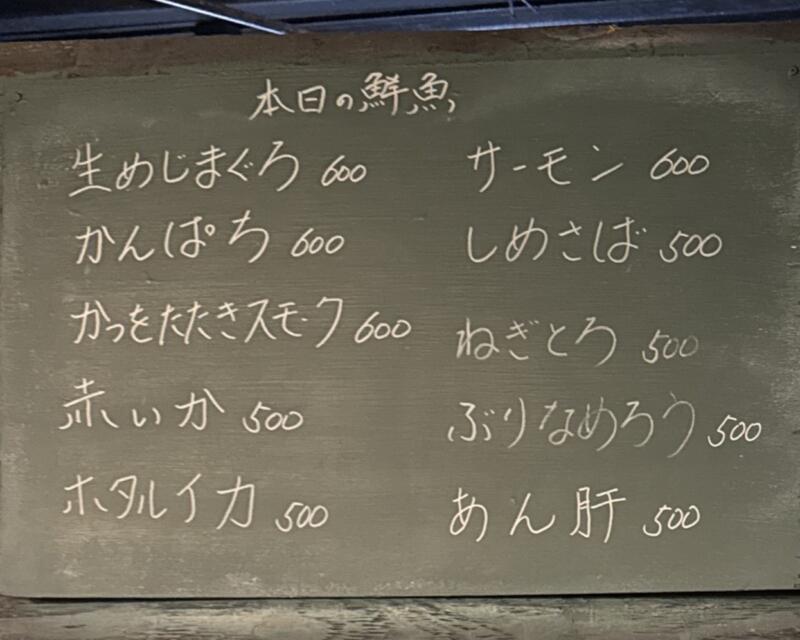 本日の鮮魚
生めじまぐろ 600
かんぱち 600
かつをたたきスモーク 600
赤いか 500
ホタルイカ 500
サーモン 600
しめさば 500
ねぎとろ 500
ぶりなめろう 500
あん肝 500